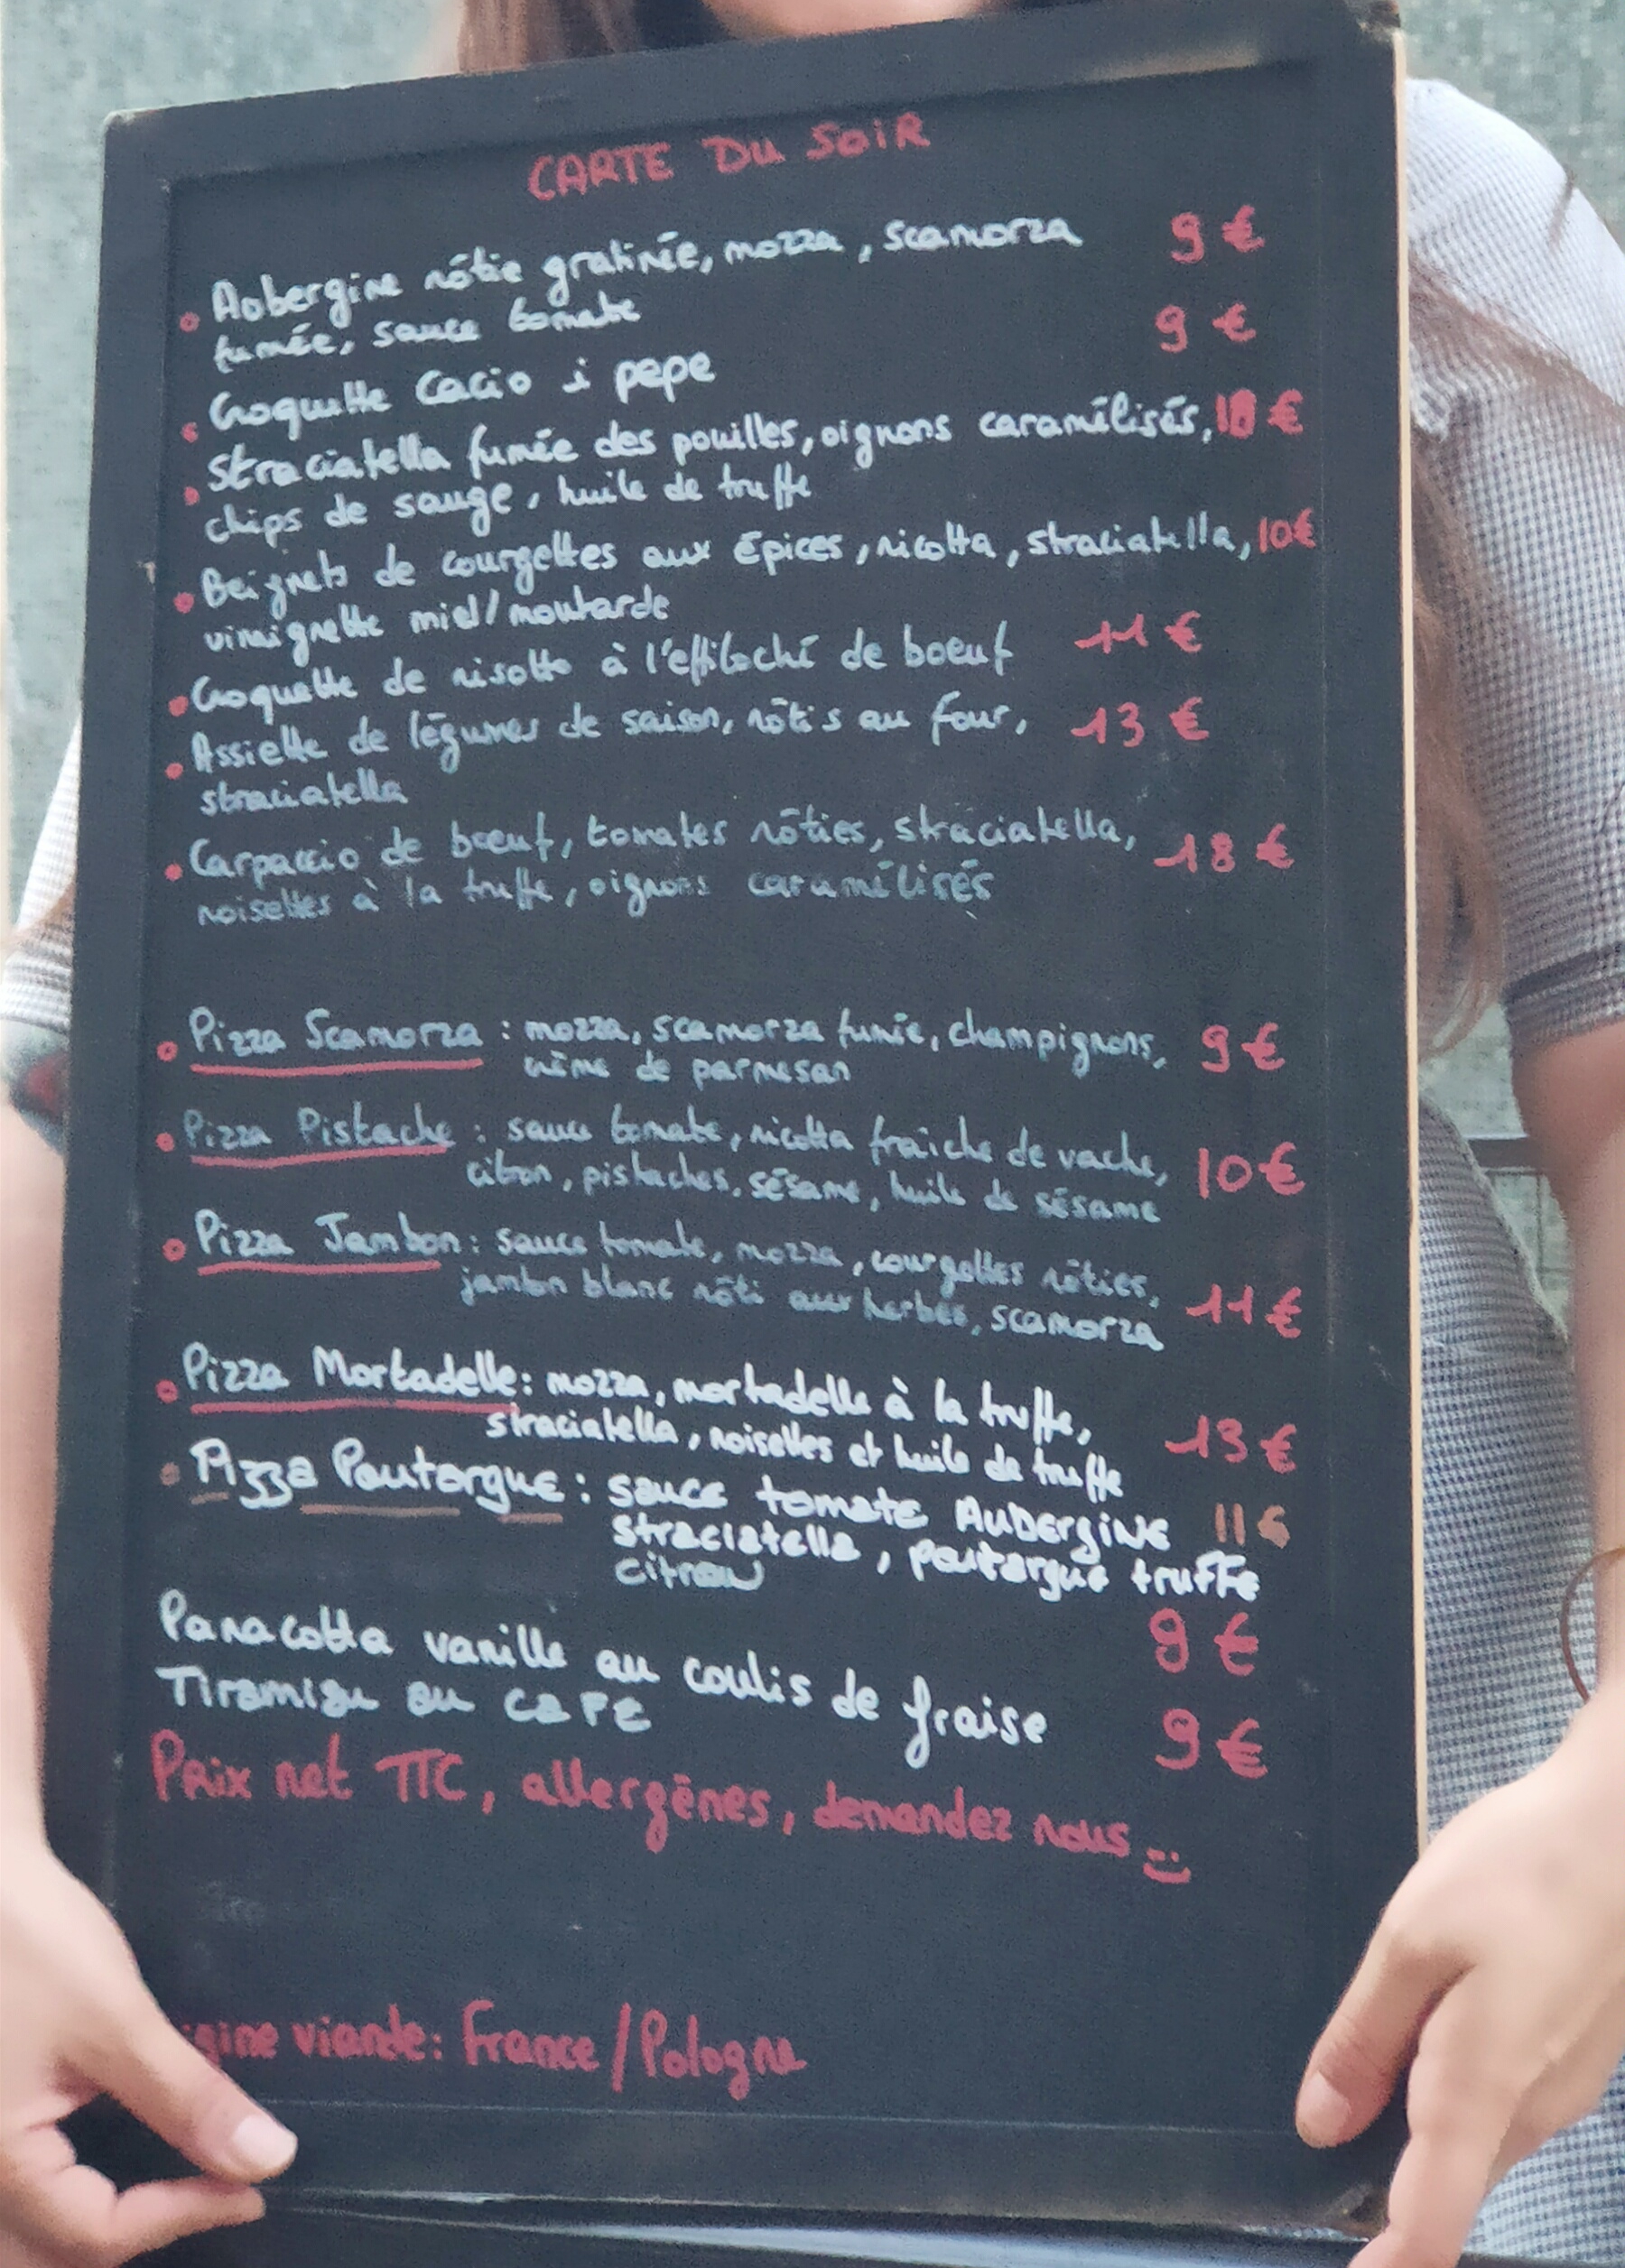 CARTE DU SOIR
Aubergine rôtie gratinée, mozza, scamorza 9 €
fumée, sauce tomate
Croquette Cacio i pepe 9 €
Straciatella fumée des pouilles, oignons caramélisés, €
chips de sauge, huile de truffe
Beignets de courgettes aux épices, ricotta, straciatella, 10€
vinaignette miel/moutarde
Croquette de risotto à l'effiloché de boeuf 11 €
Assiette de légumes de saison, rôtis au four, 13 €
straciatella
Carpaccio de boeuf, tomates rôties, straciatella, 18 €
noisettes à la truffe, oignons caramélisés
Pizza Scamorza : mozza, scamorza fumée, champignons, 9€
crème de parmesan
Pizza Pistache : sauce tomate, ricotta fraîche de vache, 10€
citron, pistaches, sésame, huile de sésame
Pizza Jambon : sauce tomate, mozza, courgettes rôties, 11€
jambon blanc rôti aux herbes, scamorza
Pizza Mortadelle : mozza, mortadelle à la truffe, 13€
straciatella, noisettes et huile de truffe
Pizza Poutargue : sauce tomate AUBERGINE 11€
straciatella, poutargue truffe
citron
Panacotta vanille au coulis de fraise 9€
Tiramisu au café 9€
Prix net TTC, allergènes, demandez nous :)
gine viande : France/Pologne